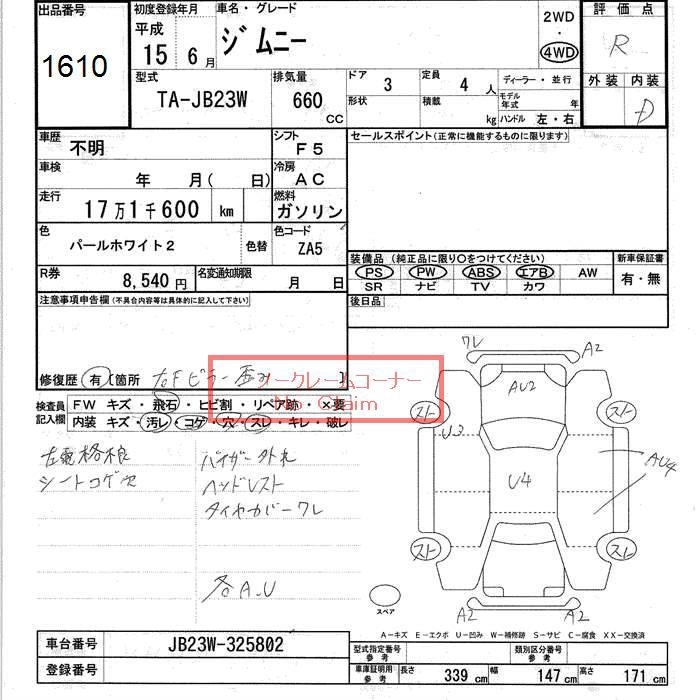 出品番号
1610
初度登録年月
平成
15年 6月
車名・グレード
ジムニー
2WD
・
4WD
評価点
R
外装 内装
D
型式
TA-JB23W
排気量
660
CC
ドア 3
形状
定員 4 人
積載 kg
ディーラー・並行
モデル年式 年
ハンドル 左・右
車歴
不明
シフト
F5
セールスポイント(正常に機能するものに限ります)
車検
年 月( 日)
冷房
AC
走行
17万1千600 km
燃料
ガソリン
色
パールホワイト2
色替
色コード
ZA5
装備品(純正品に限り○をつけてください)
新車保証書
PS PW ABS エアB AW
SR ナビ TV カワ
有・無
R券
8,540円
名変通知期限
月 日
後日品
注意事項申告欄(不具合内容等は具体的に記入して下さい)
修復歴 有 〔箇所 右Fピラー歪み 〕
ノークレームコーナー
No Claim
検査員
記入欄
FW キズ・飛石・ヒビ割・リペア跡・×要
内装 キズ・汚レ・コゲ・穴・スレ・キレ・破レ
左電格不良
シートコゲ穴
バイザー外れ
ヘッドレスト
タイヤカバーワレ
各A.U
ワレ
A2
AU2
スト
スト
U3
U4
AU4
スト
スト
スペア
A2
A2
A-キズ E-エクボ U-凹み W-補修跡 S-サビ C-腐食 XX-交換済
車台番号
JB23W-325802
登録番号
型式指定番号
参考
類別区分番号
参考
車庫証明用
参考
長さ 339 cm 幅 147 cm 高さ 171 cm